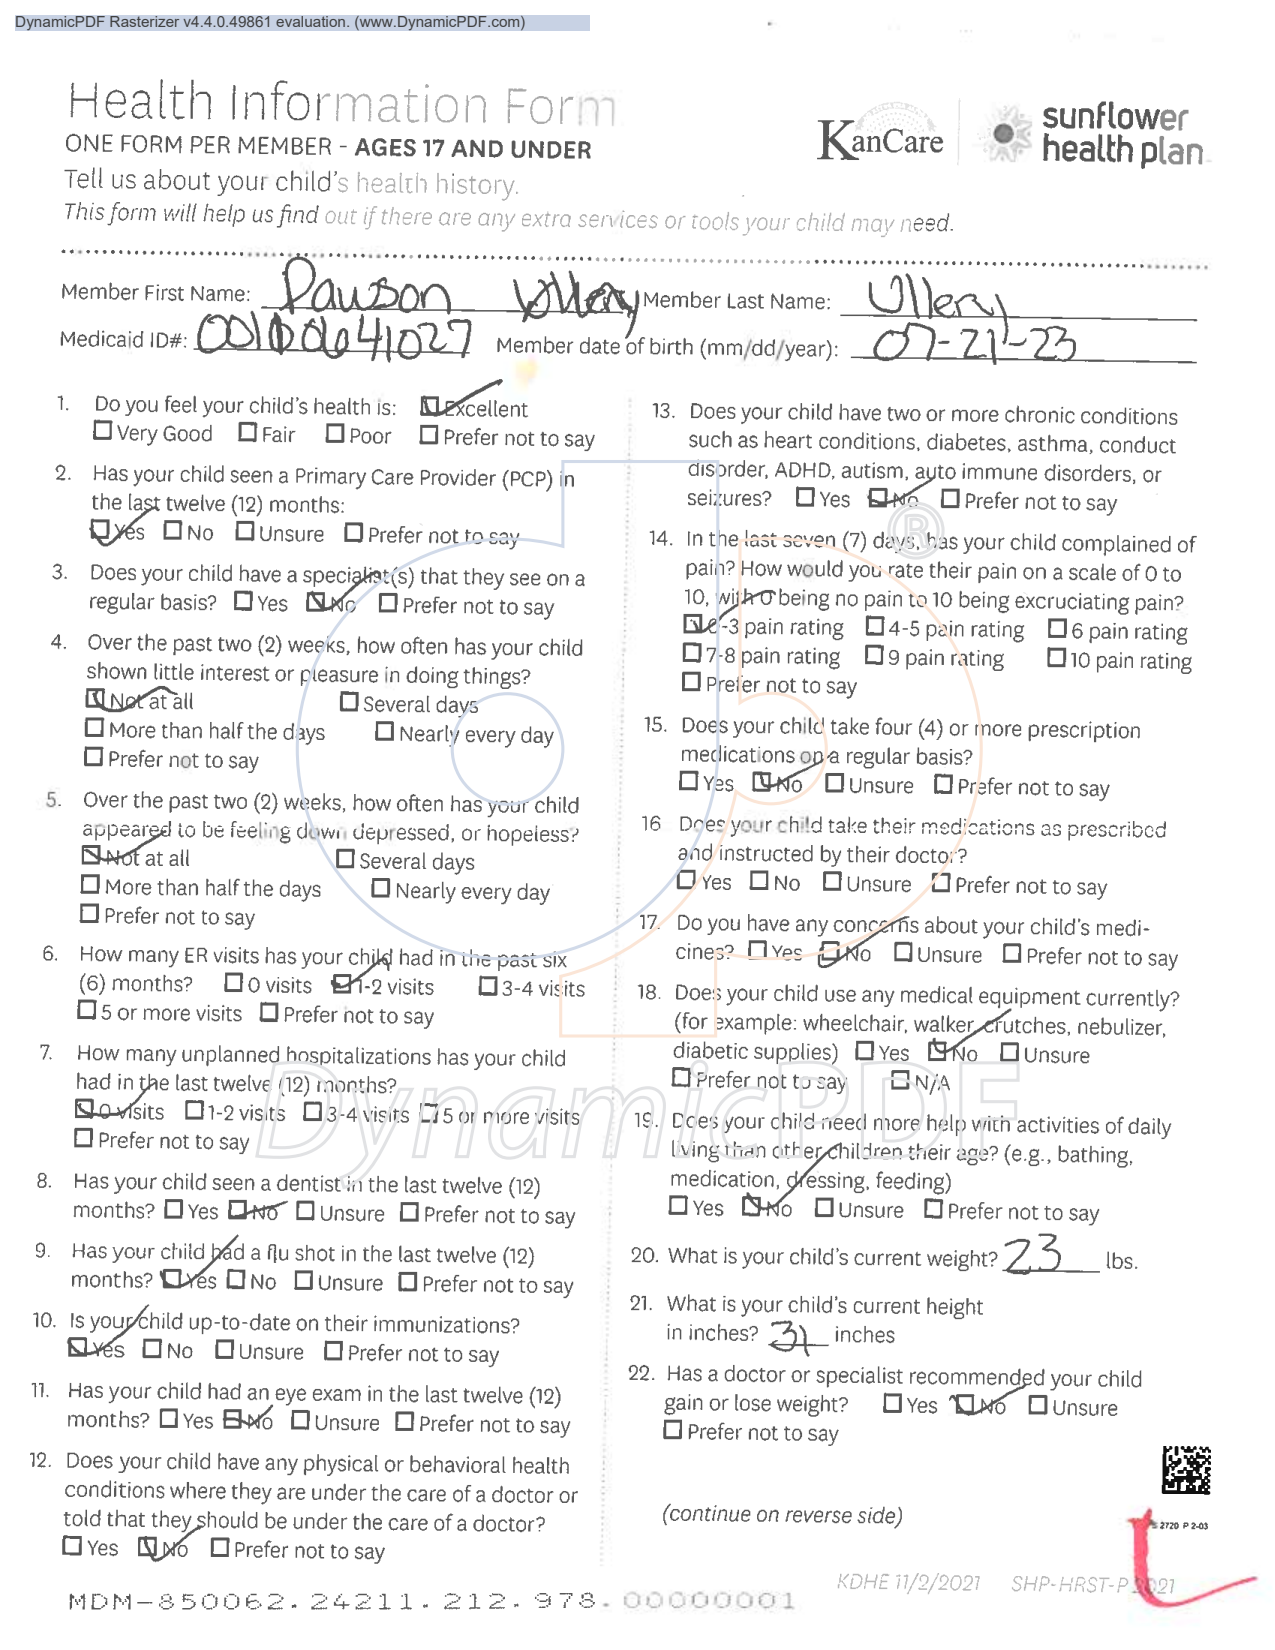 DynamicPDF Rasterizer v4.4.0.49861 evaluation. (www.DynamicPDF.com)
Health Information Form
ONE FORM PER MEMBER - AGES 17 AND UNDER
Tell us about your child's health history.
This form will help us find out if there are any extra services or tools your child may need.
KanCare
sunflower
health plan
Member First Name: Dawson Ullery Member Last Name: Ullery
Medicaid ID#: Member date of birth (mm/dd/year): 07-21-23
1. Do you feel your child's health is: ☑ Excellent
☐ Very Good ☐ Fair ☐ Poor ☐ Prefer not to say
2. Has your child seen a Primary Care Provider (PCP) in
the last twelve (12) months:
☑ Yes ☐ No ☐ Unsure ☐ Prefer not to say
3. Does your child have a specialist(s) that they see on a
regular basis? ☐ Yes ☑ No ☐ Prefer not to say
4. Over the past two (2) weeks, how often has your child
shown little interest or pleasure in doing things?
☑ Not at all ☐ Several days
☐ More than half the days ☐ Nearly every day
☐ Prefer not to say
5. Over the past two (2) weeks, how often has your child
appeared to be feeling down depressed, or hopeless?
☑ Not at all ☐ Several days
☐ More than half the days ☐ Nearly every day
☐ Prefer not to say
6. How many ER visits has your child had in the past six
(6) months? ☐ 0 visits ☑ 1-2 visits ☐ 3-4 visits
☐ 5 or more visits ☐ Prefer not to say
7. How many unplanned hospitalizations has your child
had in the last twelve (12) months?
☑ 0 visits ☐ 1-2 visits ☐ 3-4 visits ☐ 5 or more visits
☐ Prefer not to say
8. Has your child seen a dentist in the last twelve (12)
months? ☐ Yes ☑ No ☐ Unsure ☐ Prefer not to say
9. Has your child had a flu shot in the last twelve (12)
months? ☑ Yes ☐ No ☐ Unsure ☐ Prefer not to say
10. Is your child up-to-date on their immunizations?
☑ Yes ☐ No ☐ Unsure ☐ Prefer not to say
11. Has your child had an eye exam in the last twelve (12)
months? ☐ Yes ☑ No ☐ Unsure ☐ Prefer not to say
12. Does your child have any physical or behavioral health
conditions where they are under the care of a doctor or
told that they should be under the care of a doctor?
☐ Yes ☑ No ☐ Prefer not to say
13. Does your child have two or more chronic conditions
such as heart conditions, diabetes, asthma, conduct
disorder, ADHD, autism, auto immune disorders, or
seizures? ☐ Yes ☑ No ☐ Prefer not to say
14. In the last seven (7) days, has your child complained of
pain? How would you rate their pain on a scale of 0 to
10, with 0 being no pain to 10 being excruciating pain?
☑ 0-3 pain rating ☐ 4-5 pain rating ☐ 6 pain rating
☐ 7-8 pain rating ☐ 9 pain rating ☐ 10 pain rating
☐ Prefer not to say
15. Does your child take four (4) or more prescription
medications on a regular basis?
☐ Yes ☑ No ☐ Unsure ☐ Prefer not to say
16 Does your child take their medications as prescribed
and instructed by their doctor?
☐ Yes ☐ No ☐ Unsure ☐ Prefer not to say
17. Do you have any concerns about your child's medi-
cines? ☐ Yes ☑ No ☐ Unsure ☐ Prefer not to say
18. Does your child use any medical equipment currently?
(for example: wheelchair, walker, crutches, nebulizer,
diabetic supplies) ☐ Yes ☑ No ☐ Unsure
☐ Prefer not to say ☐ N/A
19. Does your child need more help with activities of daily
living than other children their age? (e.g., bathing,
medication, dressing, feeding)
☐ Yes ☑ No ☐ Unsure ☐ Prefer not to say
20. What is your child's current weight? 23 lbs.
21. What is your child's current height
in inches? 31 inches
22. Has a doctor or specialist recommended your child
gain or lose weight? ☐ Yes ☑ No ☐ Unsure
☐ Prefer not to say
(continue on reverse side)
2720 P 2-03
KDHE 11/2/2021 SHP-HRST-P 2021
MDM-850062.24211.212.978.00000001
DynamicPDF
®